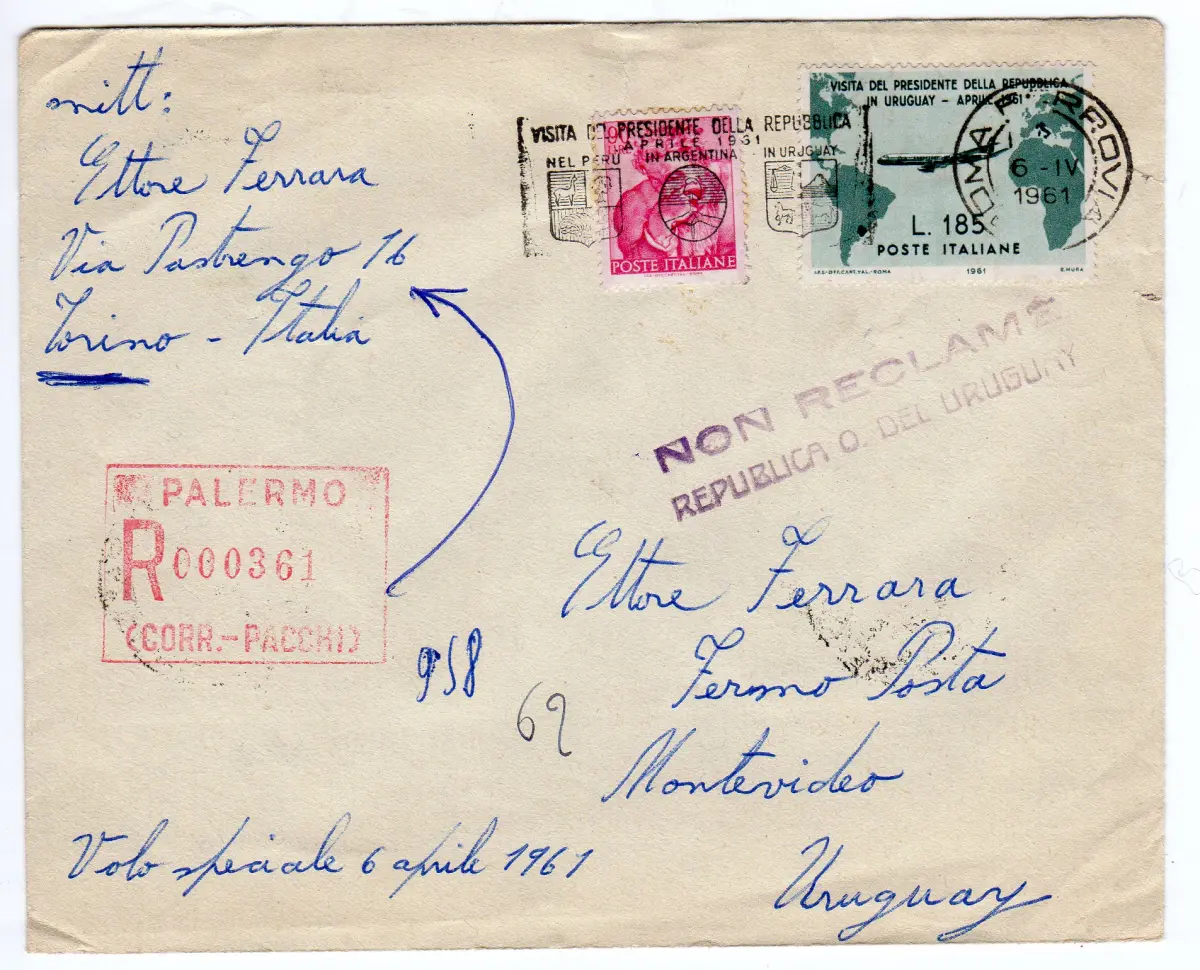 mitt:
Ettore Ferrara
Via Pastrengo 16
Torino - Italia
VISITA DEL PRESIDENTE DELLA REPUBBLICA
APRILE 1961
NEL PERÙ IN ARGENTINA IN URUGUAY
POSTE ITALIANE
VISITA DEL PRESIDENTE DELLA REPUBBLICA
IN URUGUAY - APRILE 1961
L. 185
POSTE ITALIANE
I.P.S.-OFF.CART.VAL.-ROMA 1961 E.MURA
ROMA FERROVIA
6-IV
1961
NON RECLAMÉ
REPUBLICA O. DEL URUGUAY
PALERMO
R 000361
(CORR.-PACCHI)
Ettore Ferrara
Fermo Posta
Montevideo
Uruguay
958
62
Volo speciale 6 aprile 1961